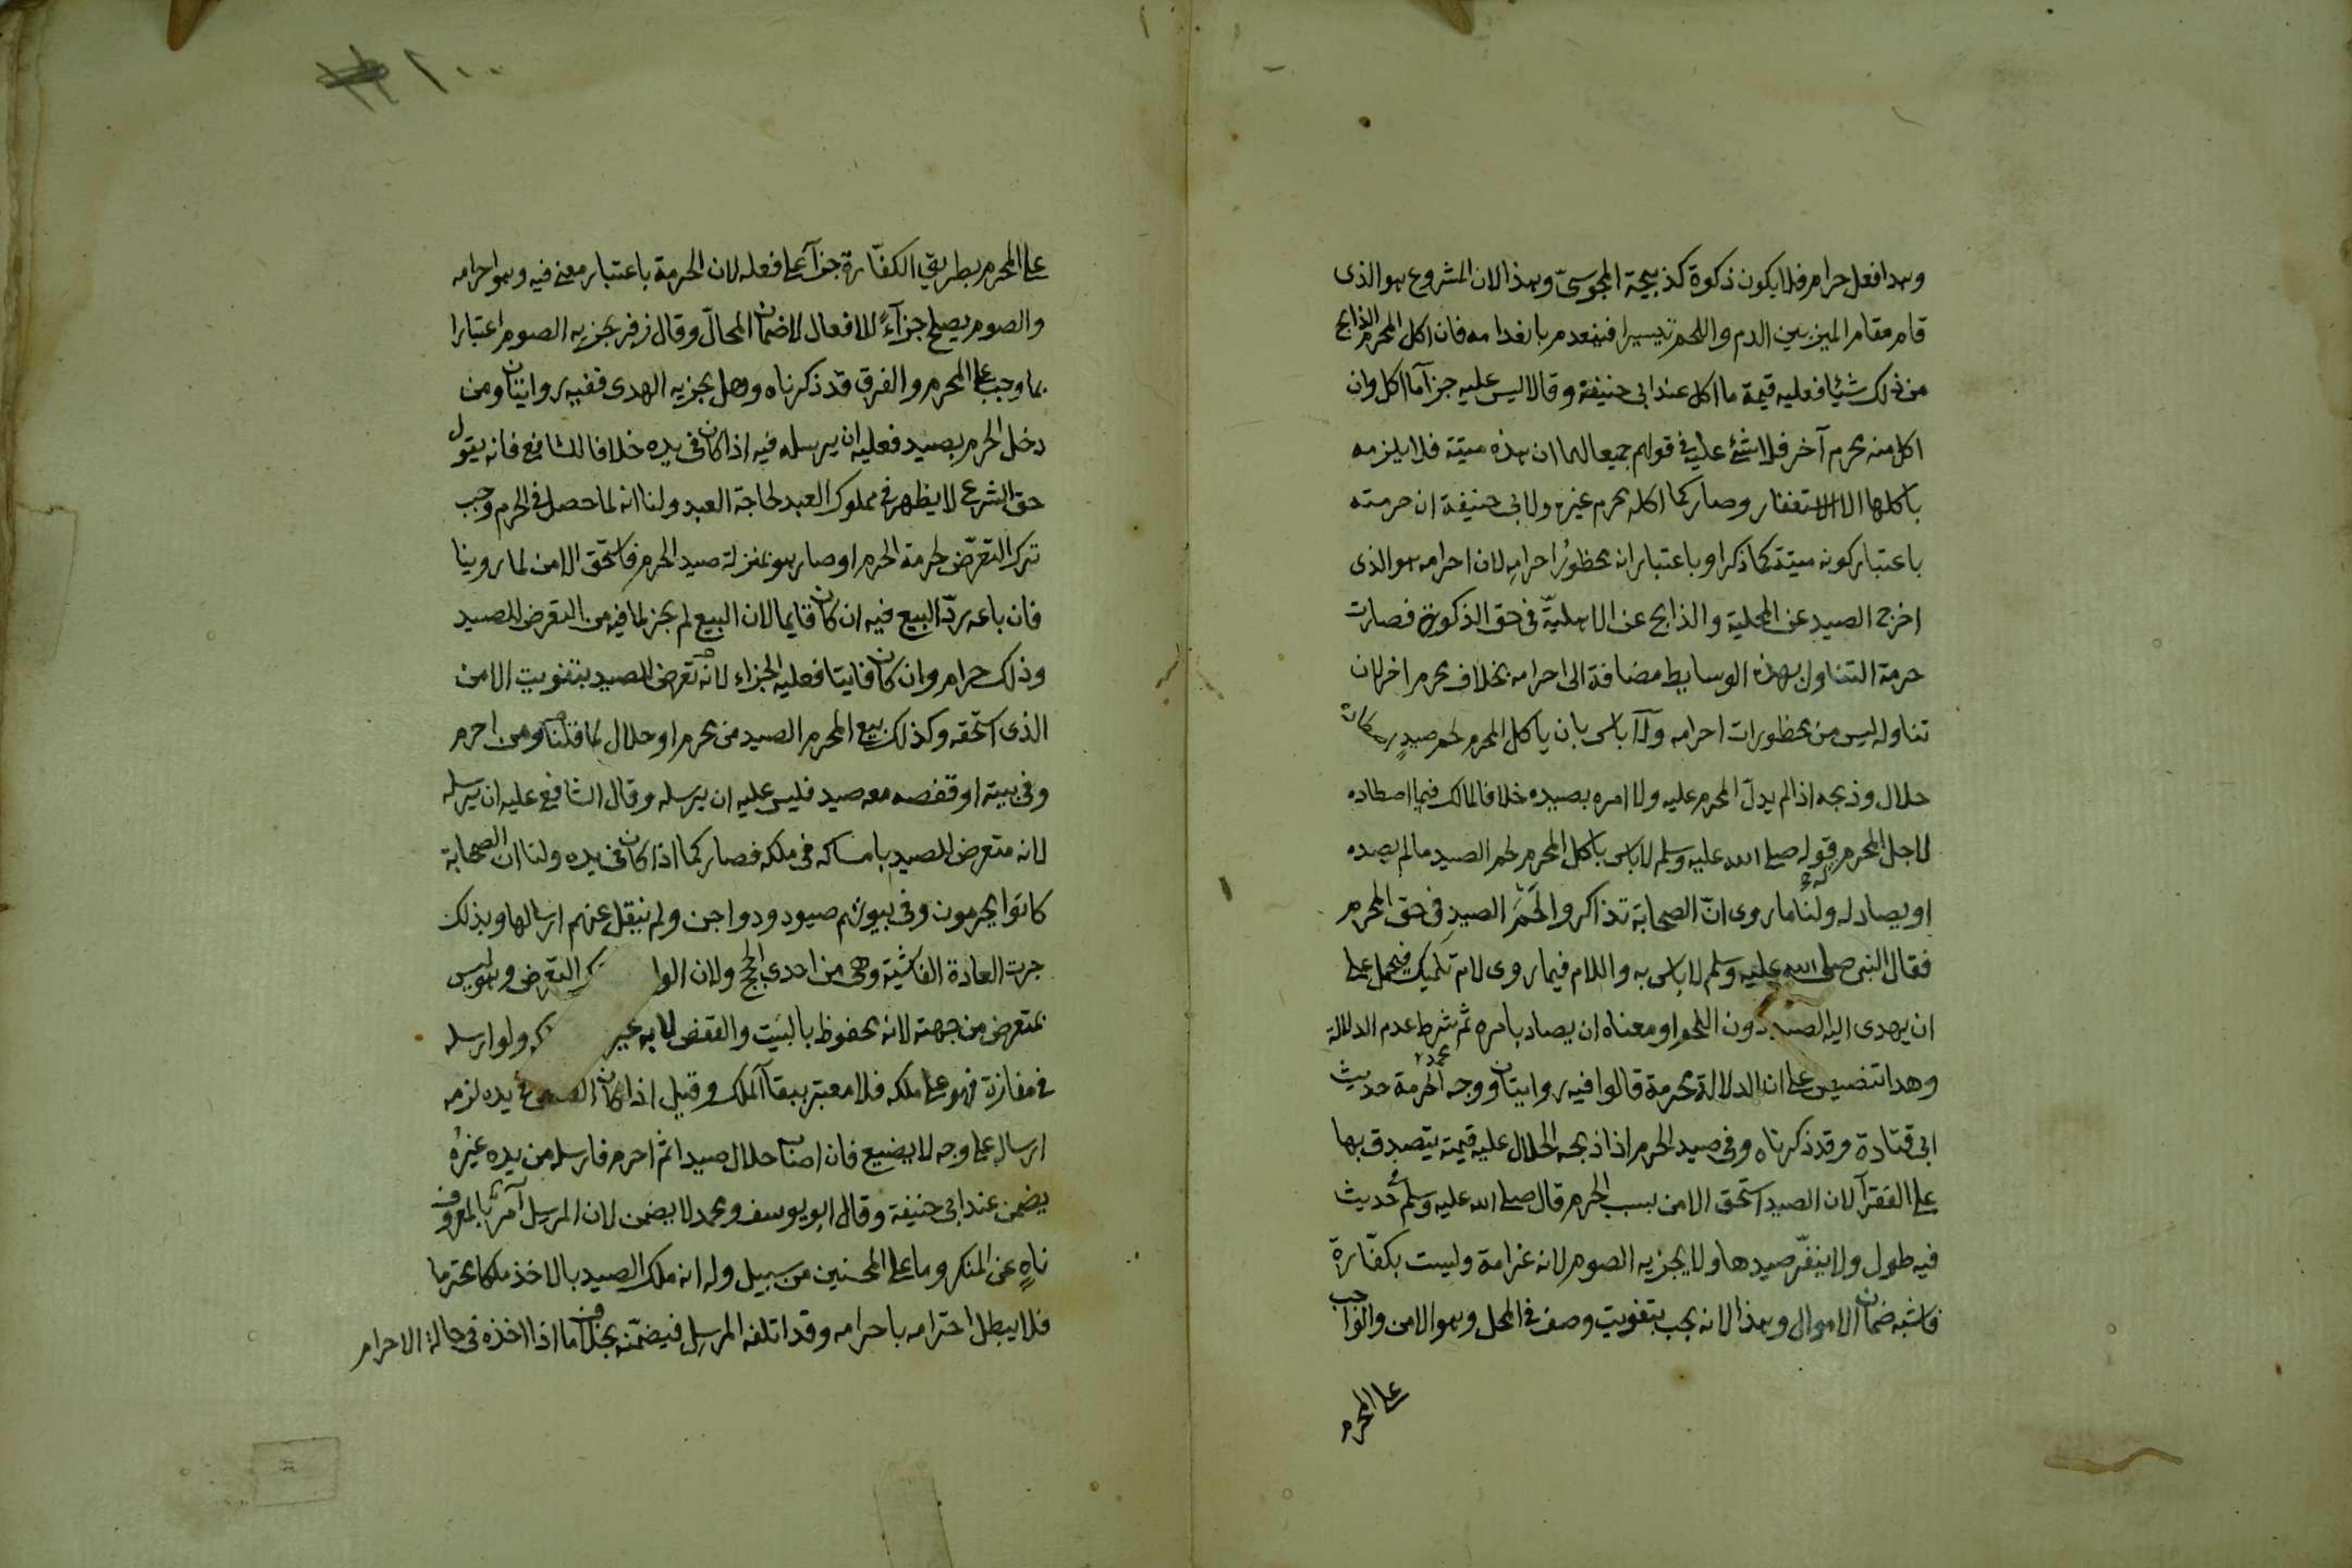 وهذا فعل حرام فلا يكون ذكوة كذبيحة المجوسىّ وهذا لان المشروع هو الذى
قام مقام الميز بين الدم واللحم تيسيرا فينعدم بانعدامه فان اكل المحرم الذابح
من ذلك شيئا فعليه قيمة ما اكل عند ابى حنيفة وقالا ليس عليه جزآ ما اكل وان
اكل منه محرم آخر فلا شئ عليه فى قولهم جميعا لهما ان هذه ميتة فلا يلزمه
باكلها الا الاستغفار وصار كما اكله محرم غيره ولابى حنيفة ان حرمته
باعتبار كونه ميتة كما ذكرا وباعتبار انه محظورُ احرامِه لان احرامه هو الذى
اخرج الصيد عن المحلية والذابح عن الاهليّة فى حق الذكوة فصارت
حرمة التناول بهذه الوسايط مضافة الى احرامه بخلاف محرم اخر لان
تناوله ليس من محظورات احرامه ولا باس بان ياكل المحرم لحم صيدٍ
حلال وذبحه اذا لم يدلّ المحرم عليه ولا امره بصيده خلافا لمالك فيما اصطاده
لاجل المحرم له قوله صلى الله عليه وسلم لا باس باكل المحرم لحم الصيد ما لم يصده
او يصاد له ولنا ما روى انّ الصحابة تذاكروا لحم الصيد فى حق المحرم
فقال النبى صلى الله عليه وسلم لا باس به واللام فيما روى لام تمليك فيحمل على
ان يهدى اليه الصيد دون اللحم او معناه ان يصاد بامره ثم شرط عدم الدلالة
وهذا تنصيص على ان الدلالة محرمة قالوا فيه روايتان ووجه الحرمة حديث
ابى قتادة وقد ذكرناه وفى صيد الحرم اذا ذبحه الحلال عليه قيمته يتصدق بها
على الفقرآ لان الصيد استحق الامن بسبب الحرم قال صلى الله عليه وسلم حديث
فيه طول ولا ينفّر صيدها ولا يجزيه الصوم لانه غرامة وليست بكفّارة
فاشبه ضمان الاموال وهذا لانه يجب بتفويت وصف فى المحل وهو الامن والواجب
على المحرم
١٠٠
على المحرم بطريق الكفّارة جزآ على فعله لان الحرمة باعتبار معنى فيه وهو احرامه
والصوم يصلح جزآءً للافعال لا ضمان المحالّ وقال زفر يجزيه الصوم اعتبارا
بما وجب على المحرم والفرق قد ذكرناه وهل يجزيه الهدى ففيه روايتان ومن
دخل الحرم بصيد فعليه ان يرسله فيه اذا كان فى يده خلافا للشافعى فانه يقول
حق الشرع لا يظهر فى مملوك العبد لحاجة العبد ولنا انه لما حصل فى الحرم وجب
ترك التعرّض لحرمة الحرم او صار هو بمنزلة صيد الحرم فاستحق الامن لما روينا
فان باعه ردّ البيع فيه ان كان قايما لان البيع لم يجز لما فيه من التعرض للصيد
وذلك حرام وان كان فايتا فعليه الجزاء لانه تعرض للصيد بتفويت الامن
الذى استحقه وكذلك بيع المحرم الصيد من محرم او حلال لما قلنا ومن احرم
وفى بيته او قفصه معه صيد فليس عليه ان يرسله وقال الشافعى عليه ان يرسله
لانه متعرض للصيد بامساكه فى ملكه فصار كما اذا كان فى يده ولنا ان الصحابة
كانوا يحرمون وفى بيوتهم صيود ودواجن ولم ينقل عنهم ارسالها وبذلك
جرت العادة الفاشية وهى من احدى الحجج ولان الوا ك التعرض وهو ليس
بمتعرض من جهته لانه محفوظ بالبيت والقفص لا به غير ولو ارسله
فى مفازة فهو على ملكه فلا معتبر ببقآ الملك وقيل اذا كان القفص فى يده لزمه
ارساله على وجه لا يضيع فان اصاب حلال صيدا ثم احرم فارسله من يده غيرُه
يضمن عند ابى حنيفة وقال ابو يوسف ومحمد لا يضمن لان المرسل آمر بالمعروف
ناهٍ عن المنكر وما على المحسنين من سبيل وله انه ملك الصيد بالاخذ ملكا محترما
فلا يبطل احترامه باحرامه وقد اتلفه المرسِل فيضمّنه بخلاف ما اذا اخذه فى حالة الاحرام